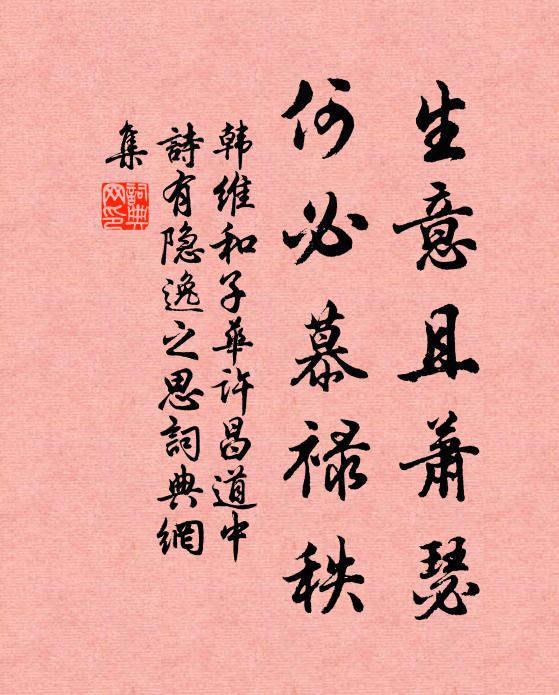 生意且萧瑟
何必慕禄秩
韩维和子华许昌道中
詩有隐逸之思詞典網
集
詞典
网印